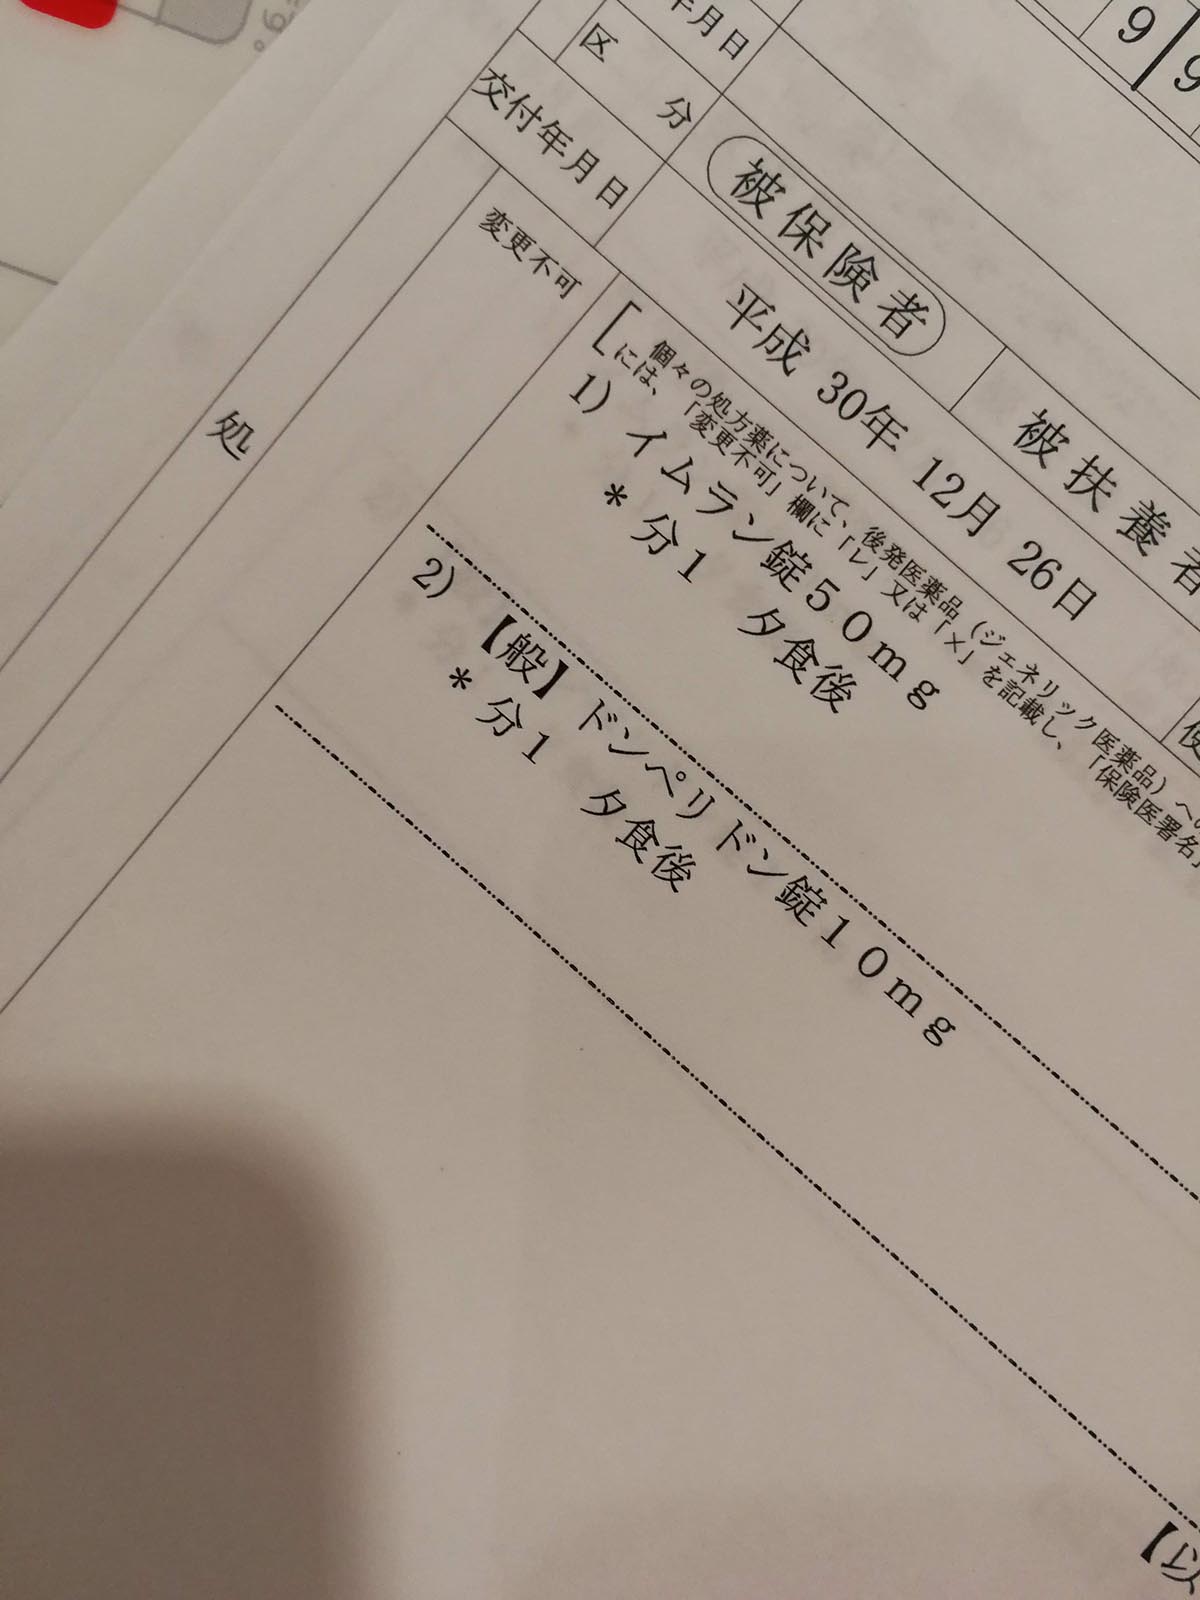 年月日
9 9
区 分
被保険者
被扶養者
交付年月日
平成 30年 12月 26日
処
変更不可
個々の処方薬について、後発医薬品(ジェネリック医薬品)への
には、「変更不可」欄に「レ」又は「×」を記載し、「保険医署名」
1) イムラン錠50mg
*分1 夕食後
2) 【般】ドンペリドン錠10mg
*分1 夕食後
【以